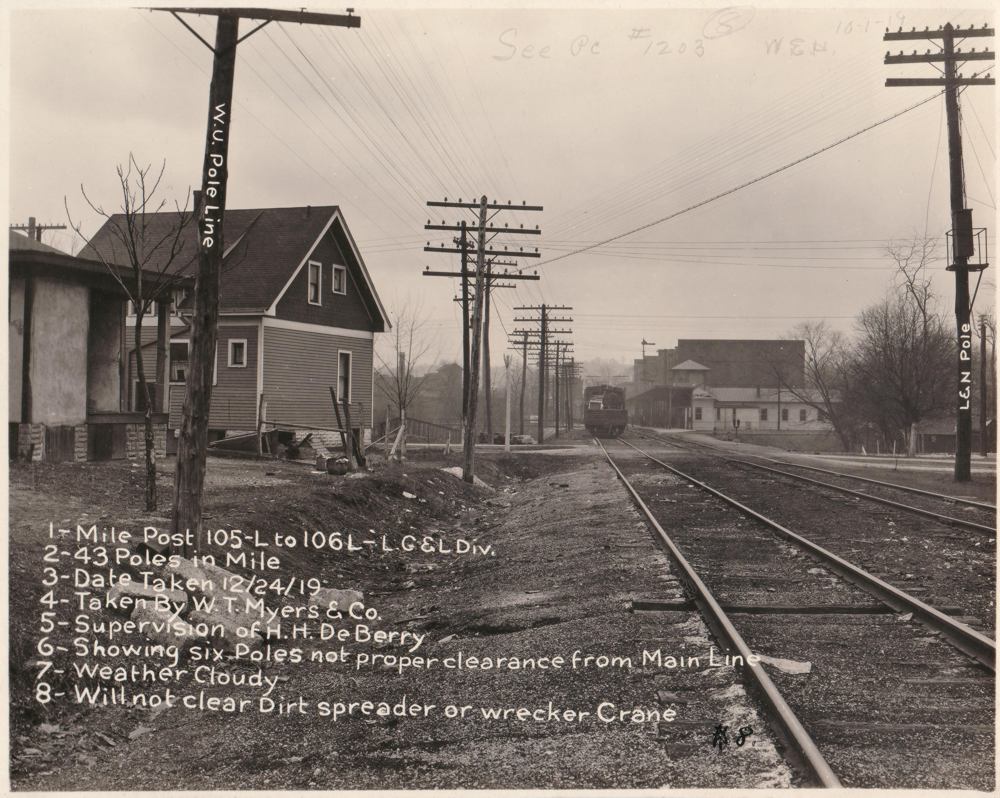 See Pc #1203 (5) W.E.H. 10-1-19
W.U. Pole Line
L&N Pole
1- Mile Post 105-L to 106L-L.C.&L Div.
2-43 Poles in Mile
3- Date Taken 12/24/19
4- Taken By W.T. Myers & Co.
5- Supervision of H.H. DeBerry
6- Showing six Poles not proper clearance from Main Line
7- Weather Cloudy
8- Will not clear Dirt spreader or wrecker Crane
#8